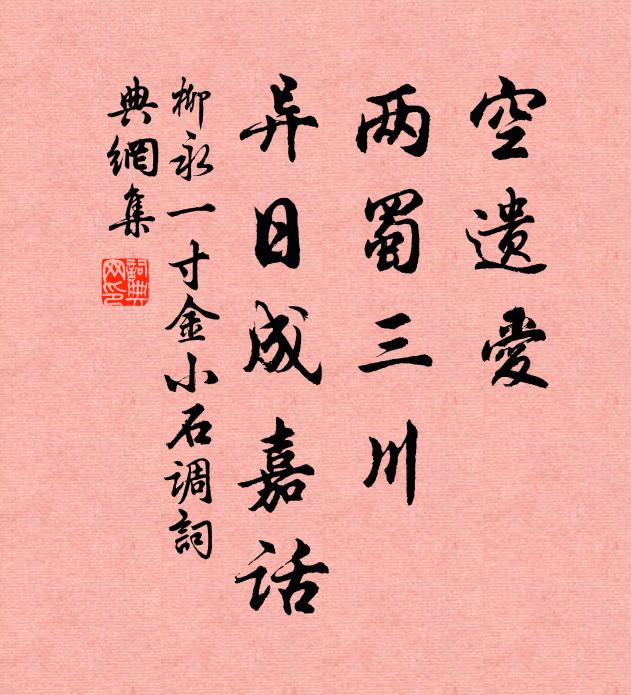 空遗爱
两蜀三川
异日成嘉话
柳永一寸金小石调詞
典網集
詞典
网印